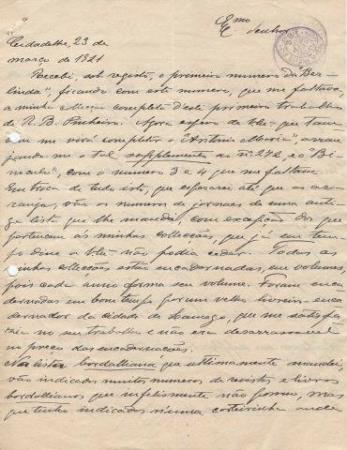 Exmo
Senhor
Cidadelhe, 23 de
março de 1921
Recebi, sob registo, o primeiro numero da "Ber-
linda", ficando com este numero, que me faltava,
a minha completa d'este primeiro trabalho
de R. B. Pinheiro. Agora espero de V. que tam-
bem me virá completar o "Antonio Maria", arran-
jando-me o tal supplemento ao nº 272, e o "Bi-
noculo", com o numero 3 e 4 que me faltam.
Em troca de tudo isto, que esperarei até que os ar-
ranja, vão os numeros de jornaes de uma anti-
ga lista que lhe mandei, com excepção dos que
pertenciam ás minhas collecções, que já em tem-
po disse a V. não podia ceder. Todas as
minhas collecções estão encadernadas, em volumes,
pois cada anno forma seu volume. Foram enca-
dernadas em bom tempo por um velho livreiro-enca-
dernador da cidade de Lamego, que me satisfa-
zia no seu trabalho e não era desarrasoavel
no preço das encadernações.
Na lista bordalliana que ultimamente mandei,
vão indicados muitos numeros de revistas e livros
bordallianos que infelizmente não possuo, mas
que tenho indicados n'uma carteirinha onde